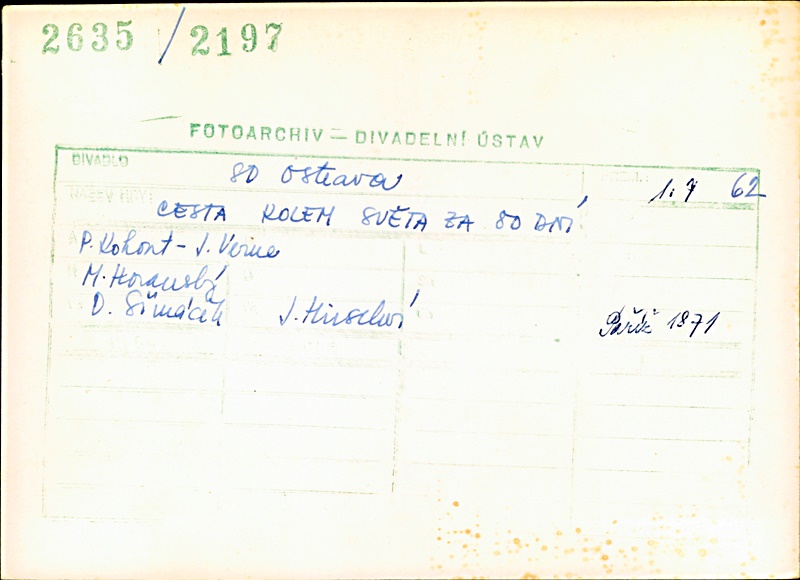 2635 / 2197
FOTOARCHIV — DIVADELNÍ ÚSTAV
DIVADLO
SD Ostrava 1. 7 62
NÁZEV HRY:
CESTA KOLEM SVĚTA ZA 80 DNÍ
P. Kohout - J. Verne
M. Horanský
D. Šimáček J. Hirschová
1871